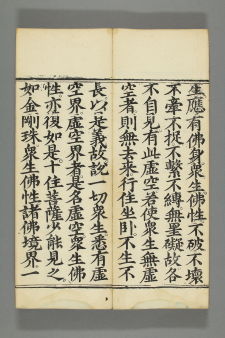 生應有佛身衆生佛性不破不壞
不牽不捉不繫不縛無罣礙故各
不自見有此虛空若使衆生無虛
空者則無去来行住坐卧不生不
長以是義故說一切衆生悉有虛
空界虛空界者是名虛空衆生佛
性亦復如是十住菩薩少能見之
如金剛珠衆生佛性諸佛境界一